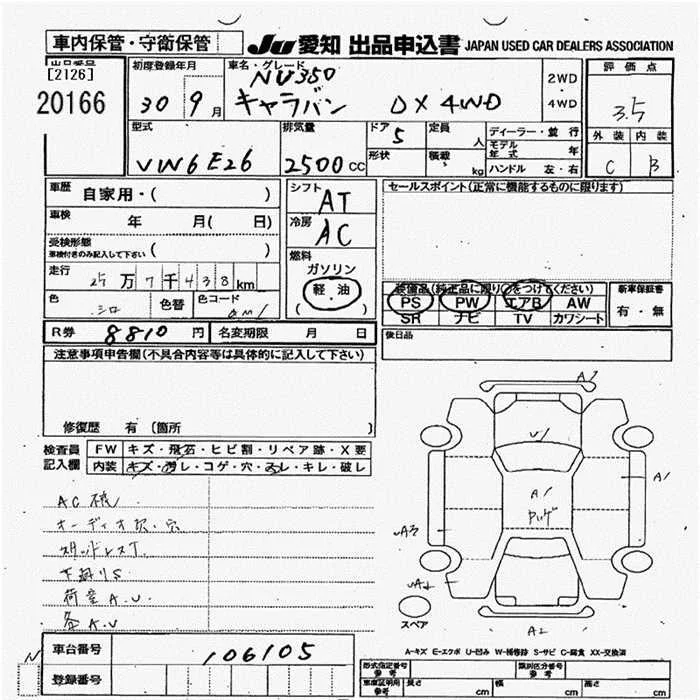 車内保管・守衛保管
JU 愛知 出品申込書 JAPAN USED CAR DEALERS ASSOCIATION
出品番号
[2126]
20166
初度登録年月
30年 9月
車名・グレード
NV350
キャラバン DX 4WD
2WD
・
4WD
評価点
3.5
外装 内装
C B
型式
VW6E26
排気量
2500 CC
ドア
5
形状
定員
人
積載
kg
ディーラー・並行
モデル年式 年
ハンドル 左・右
車歴
自家用・( )
車検
年 月( 日)
受検形態
車検付きのみ記入して下さい ( )
走行
25万7千438km
色
シロ
色替
色コード
シフト
AT
冷房
AC
燃料
ガソリン
軽・油
( )
セールスポイント(正常に機能するものに限ります)
装備品(純正品に限り○をつけてください)
PS PW エアB AW
SR ナビ TV カワシート
新車保証書
有・無
後日品
R券 8810円 名変期限 月 日
注意事項申告欄(不具合内容等は具体的に記入して下さい)
修復歴 有 〔箇所 〕
検査員
記入欄
FW キズ・飛石・ヒビ割・リペア跡・X要
内装 キズ・汚レ・コゲ・穴・スレ・キレ・破レ
下廻りS
荷室A.U
A7
V/
A1
A1
A2
スペア
A-キズ E-エクボ U-凹み W-補修跡 S-サビ C-腐食 XX-交換済
車台番号 106105
登録番号
N
型式指定番号
参考
類別区分番号
参考
車庫証明用
参考
長さ cm 幅 cm 高さ cm